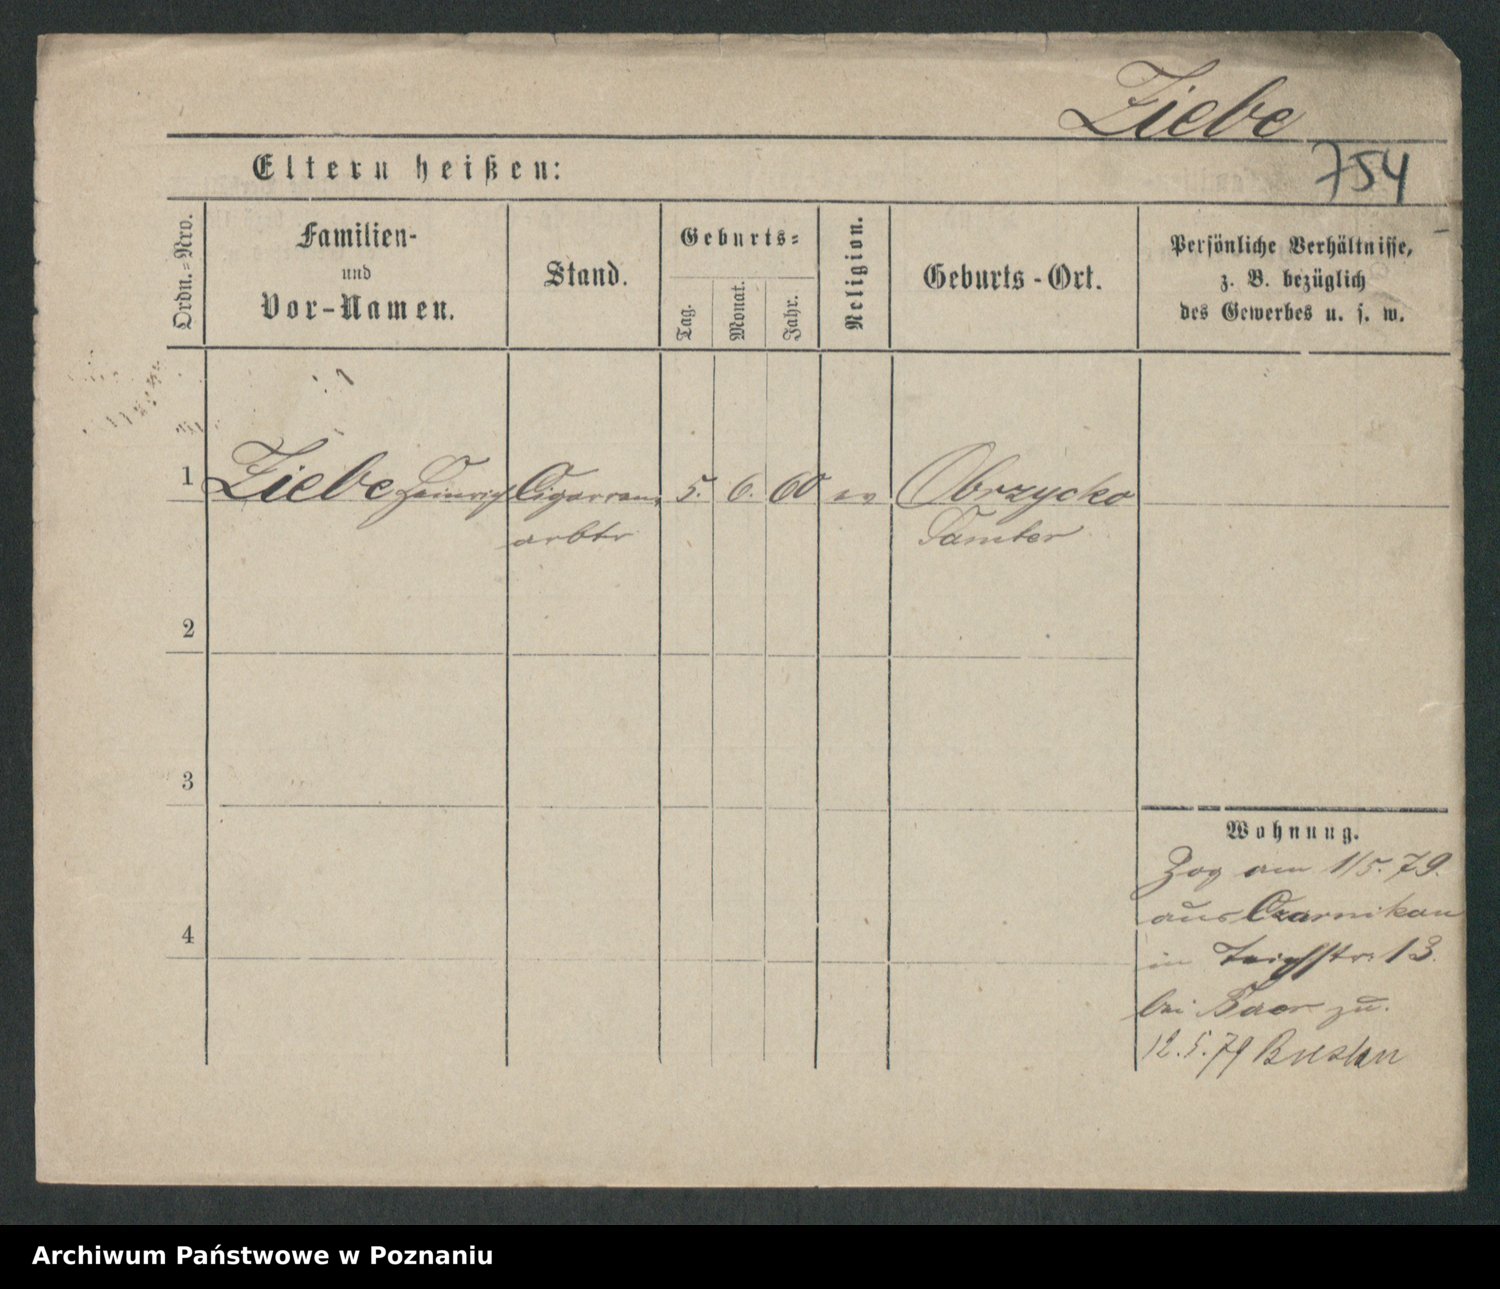 Ziebe
754
Eltern heißen:
Ordn.-Nro.
Familien-
und
Vor-Namen.
Stand.
Geburts-
Tag.
Monat.
Jahr.
Religion.
Geburts-Ort.
Persönliche Verhältnisse,
z. B. bezüglich
des Gewerbes u. s. w.
1 Ziebe Heinrich Cigarren- 5. 6. 60 ev Obrzycko
arbtr Samter
2
3
4
Wohnung.
Zog am 1/5. 79.
aus Czarnikau
in Teichstr. 13.
bei Baer zu.
12.5.79 Breslau
Archiwum Państwowe w Poznaniu